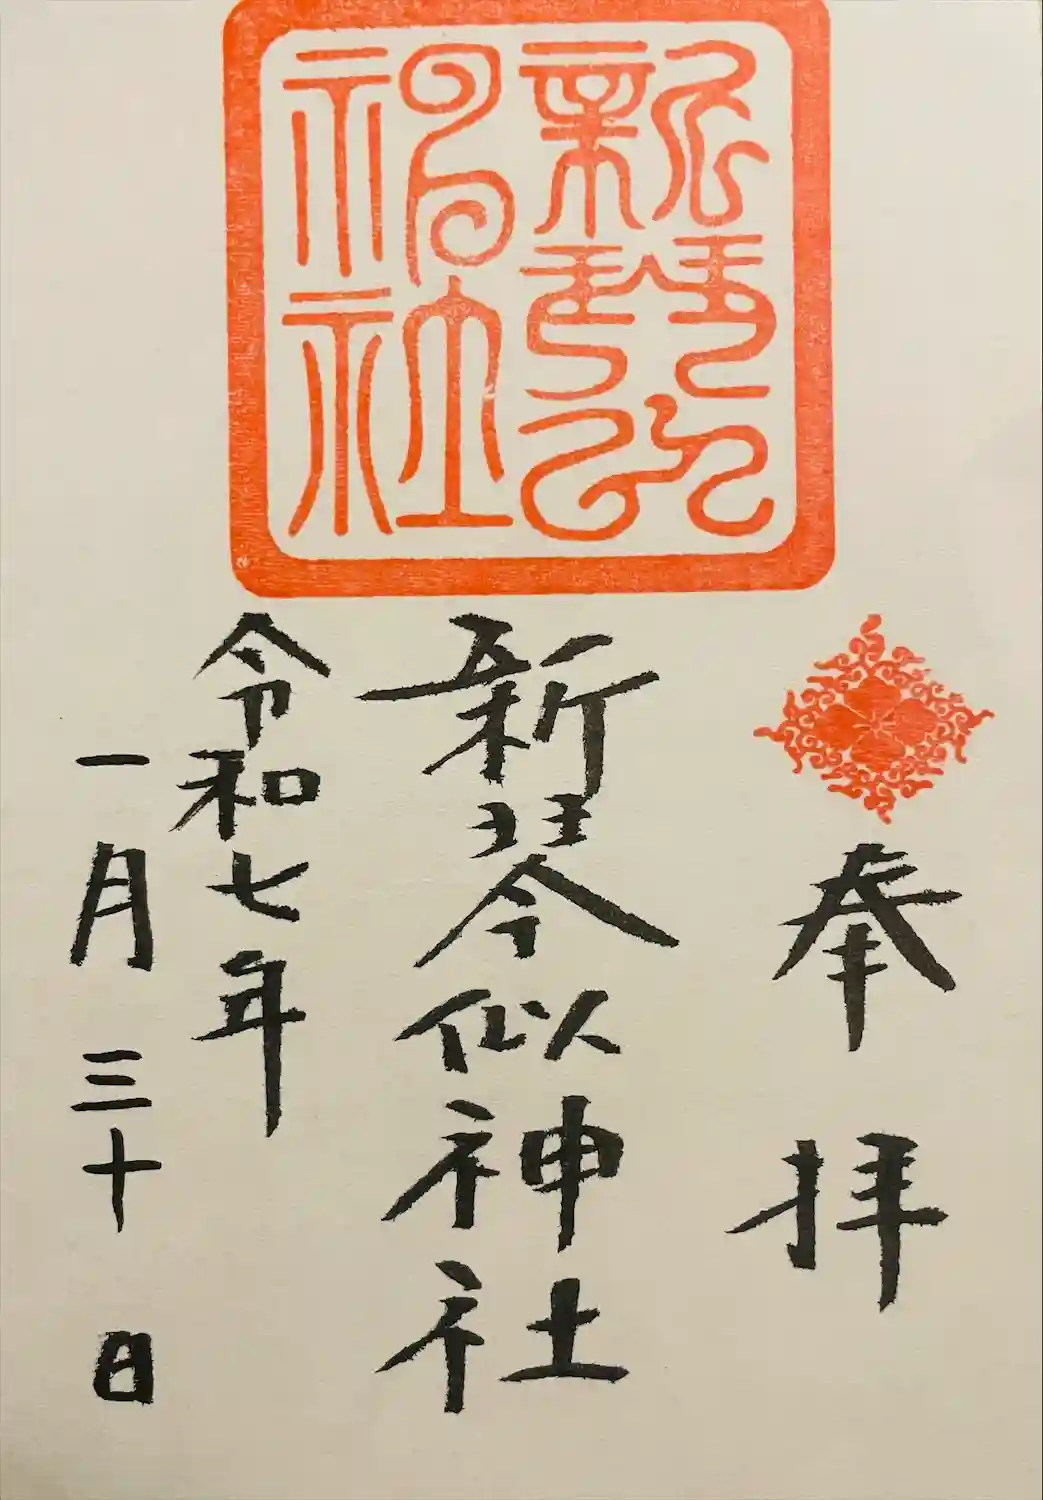 奉拝
新琴似神社
新琴似神社
令和七年
一月三十日